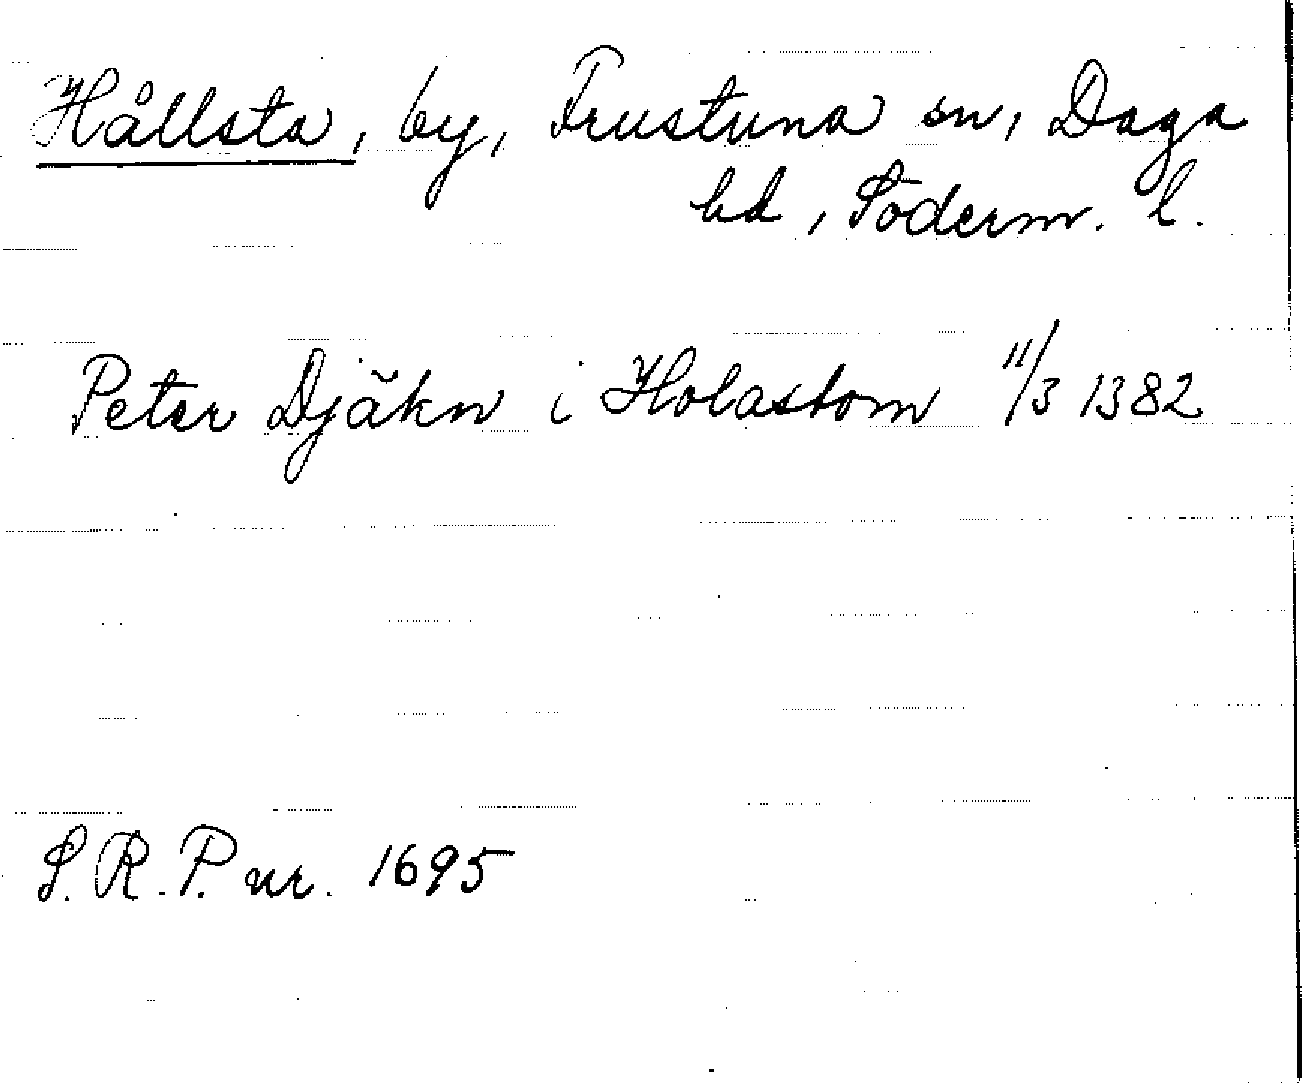 Hållsta, by, Frustuna sn, Daga
hd, Söderm. l.
Peter Djäkn i Holastom 11/3 1382
S. R. P. nr. 1695